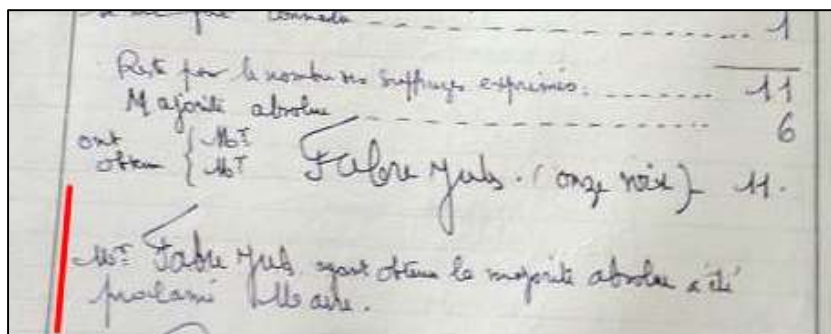 connada -------------- 1
Reste pour le nombre des suffrages exprimés. ------ 11
Majorité absolue ---------------- 6
ont obtenu { Mr
Mr Fabre Jules. (onze voix) - 11.
Mr Fabre Jules ayant obtenu la majorité absolue a été
proclamé Maire.